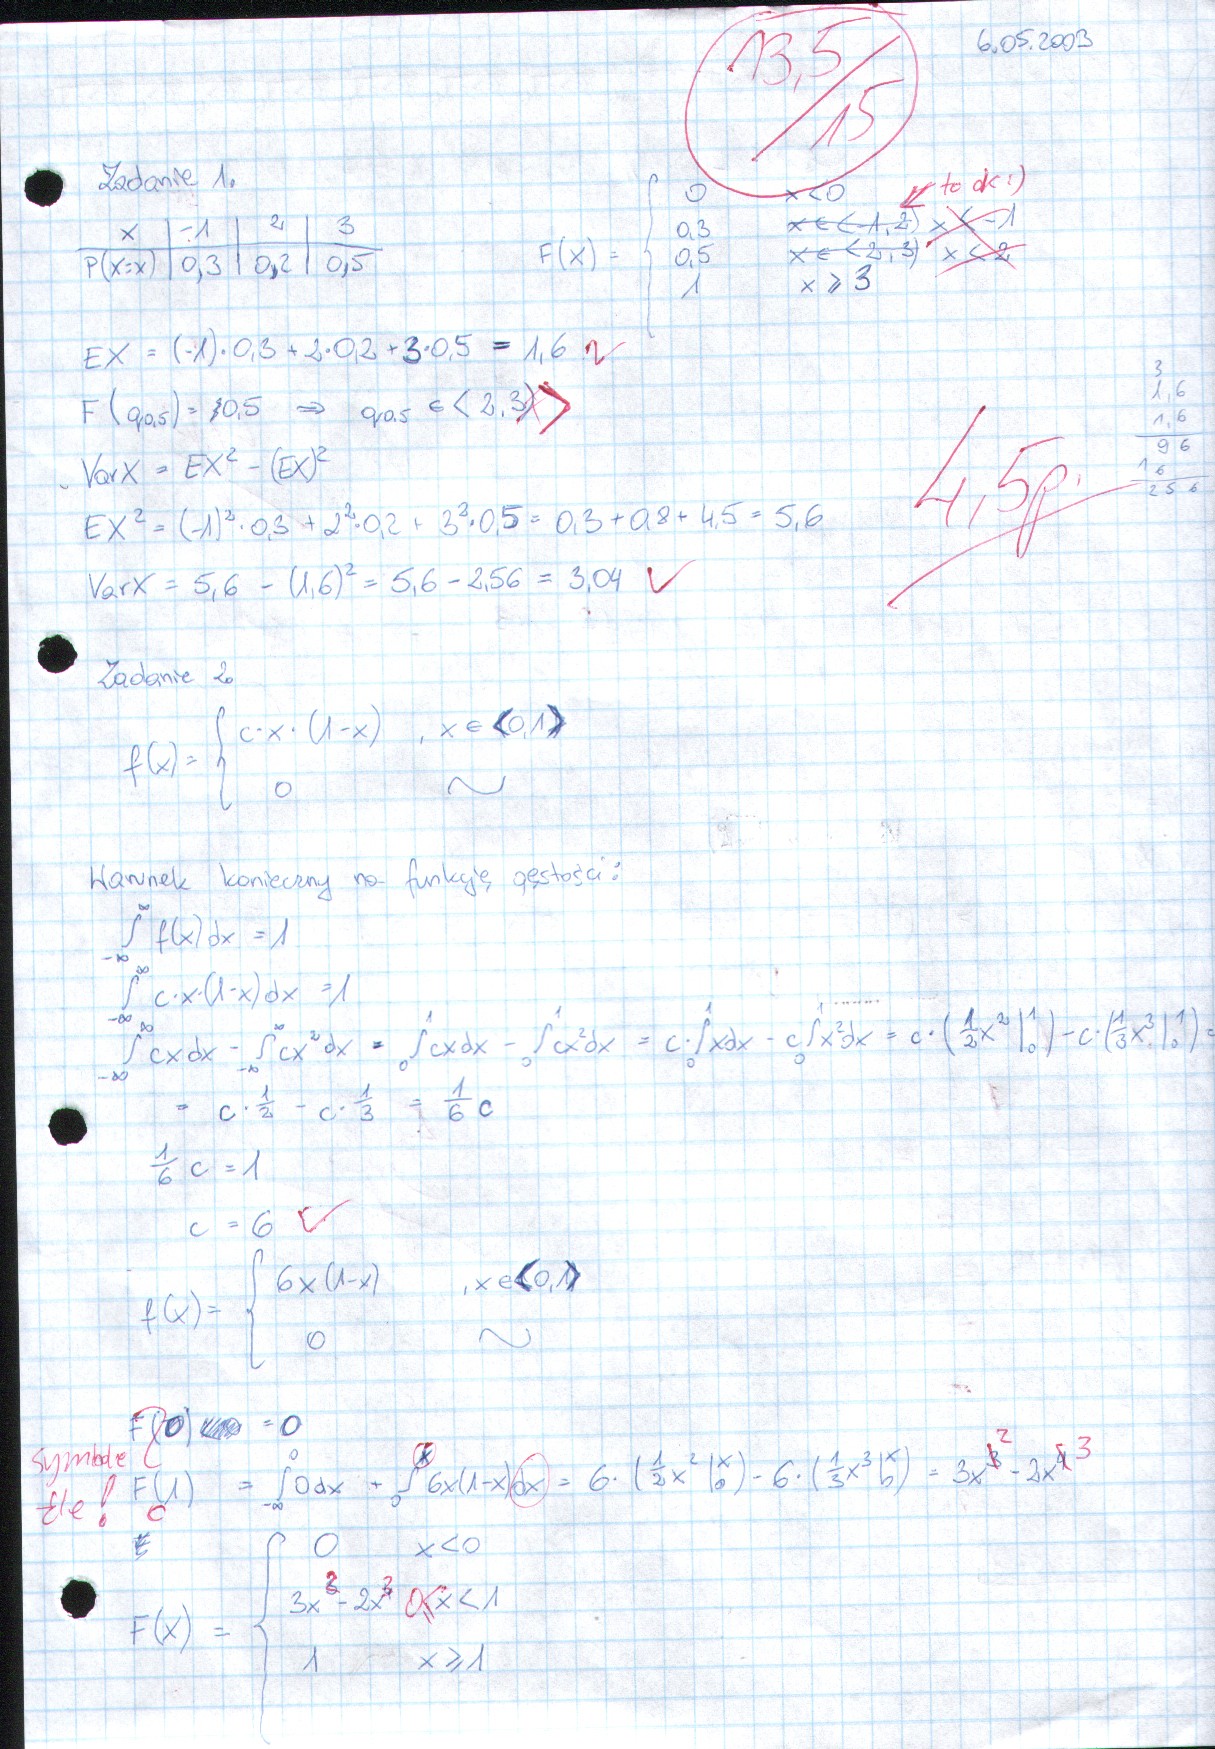 6.05.2003
13,5/15
Zadanie 1.
x | -1 | 2 | 3
P(X=x) | 0,3 | 0,2 | 0,5
F(x) = { 0 x<0
0,3 x∈<-1,2) x<-1
0,5 x∈<2,3) x<2
1 x⩾3
to ok :)
EX = (-1)·0,3 + 2·0,2 + 3·0,5 = 1,6 ✓
F(q0,5) = 0,5 ⇒ q0,5 ∈ <2,3>
VarX = EX² - (EX)²
EX² = (-1)²·0,3 + 2²·0,2 + 3²·0,5 = 0,3 + 0,8 + 4,5 = 5,6
VarX = 5,6 - (1,6)² = 5,6 - 2,56 = 3,04 ✓
3
1,6
1,6
96
16
256
4,5p.
Zadanie 2
f(x) = { c·x·(1-x) , x∈<0,1>
0 ~
Warunek konieczny na funkcję gęstości:
∫_{-∞}^{∞} f(x)dx = 1
∫_{-∞}^{∞} c·x·(1-x)dx = 1
∫_{-∞}^{∞} cxdx - ∫_{-∞}^{∞} cx²dx = ∫_0^1 cxdx - ∫_0^1 cx²dx = c·∫_0^1 xdx - c∫_0^1 x²dx = c·(1/2 x²|_0^1) - c·(1/3 x³|_0^1) =
= c·1/2 - c·1/3 = 1/6 c
1/6 c = 1
c = 6 ✓
f(x) = { 6x(1-x) , x∈<0,1>
0 ~
F(0) = 0
symbole źle!
F(1) = ∫_{-∞}^0 0dx + ∫_0^x 6x(1-x)dx = 6·(1/2 x²|_0^x) - 6·(1/3 x³|_0^x) = 3x² - 2x³
F(x) = { 0 x<0
3x² - 2x³ 0≤x<1
1 x⩾1